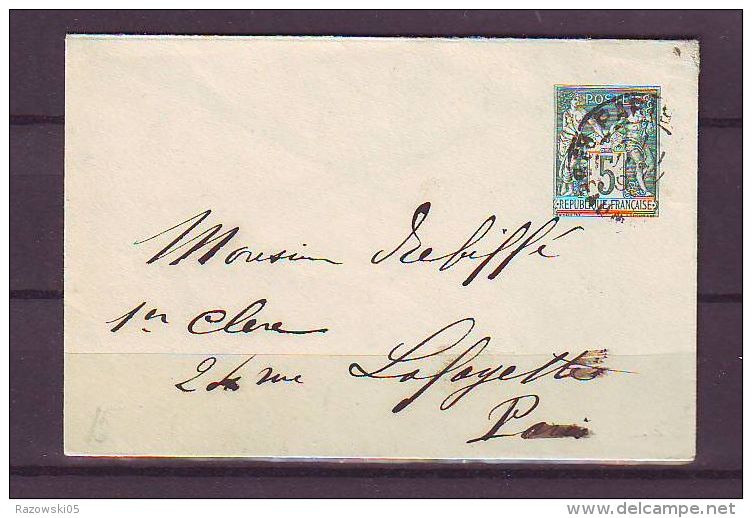 POSTES
5
REPUBLIQUE FRANÇAISE
Monsieur Rebiffé
1er Clerc
24 rue Lafayette
Paris
15
Razowski05
delcampe.net